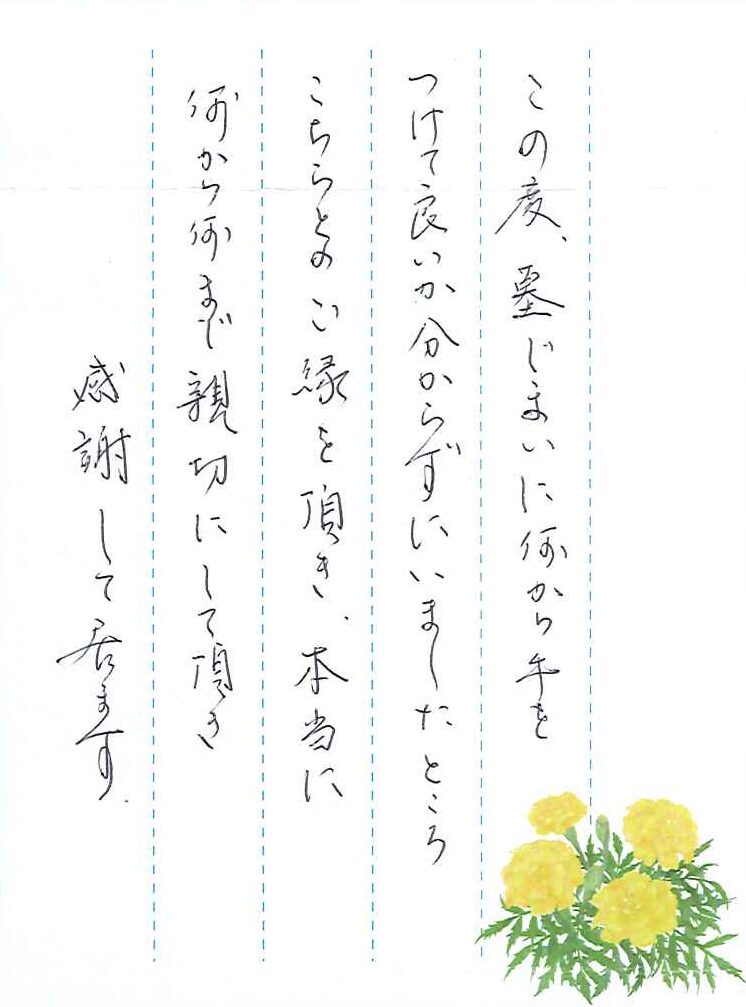 この度、墓じまいに何から手を
つけて良いか分からずにいましたところ
こちらとのご縁を頂き、本当に
何から何まで親切にして頂き
感謝して居ます.